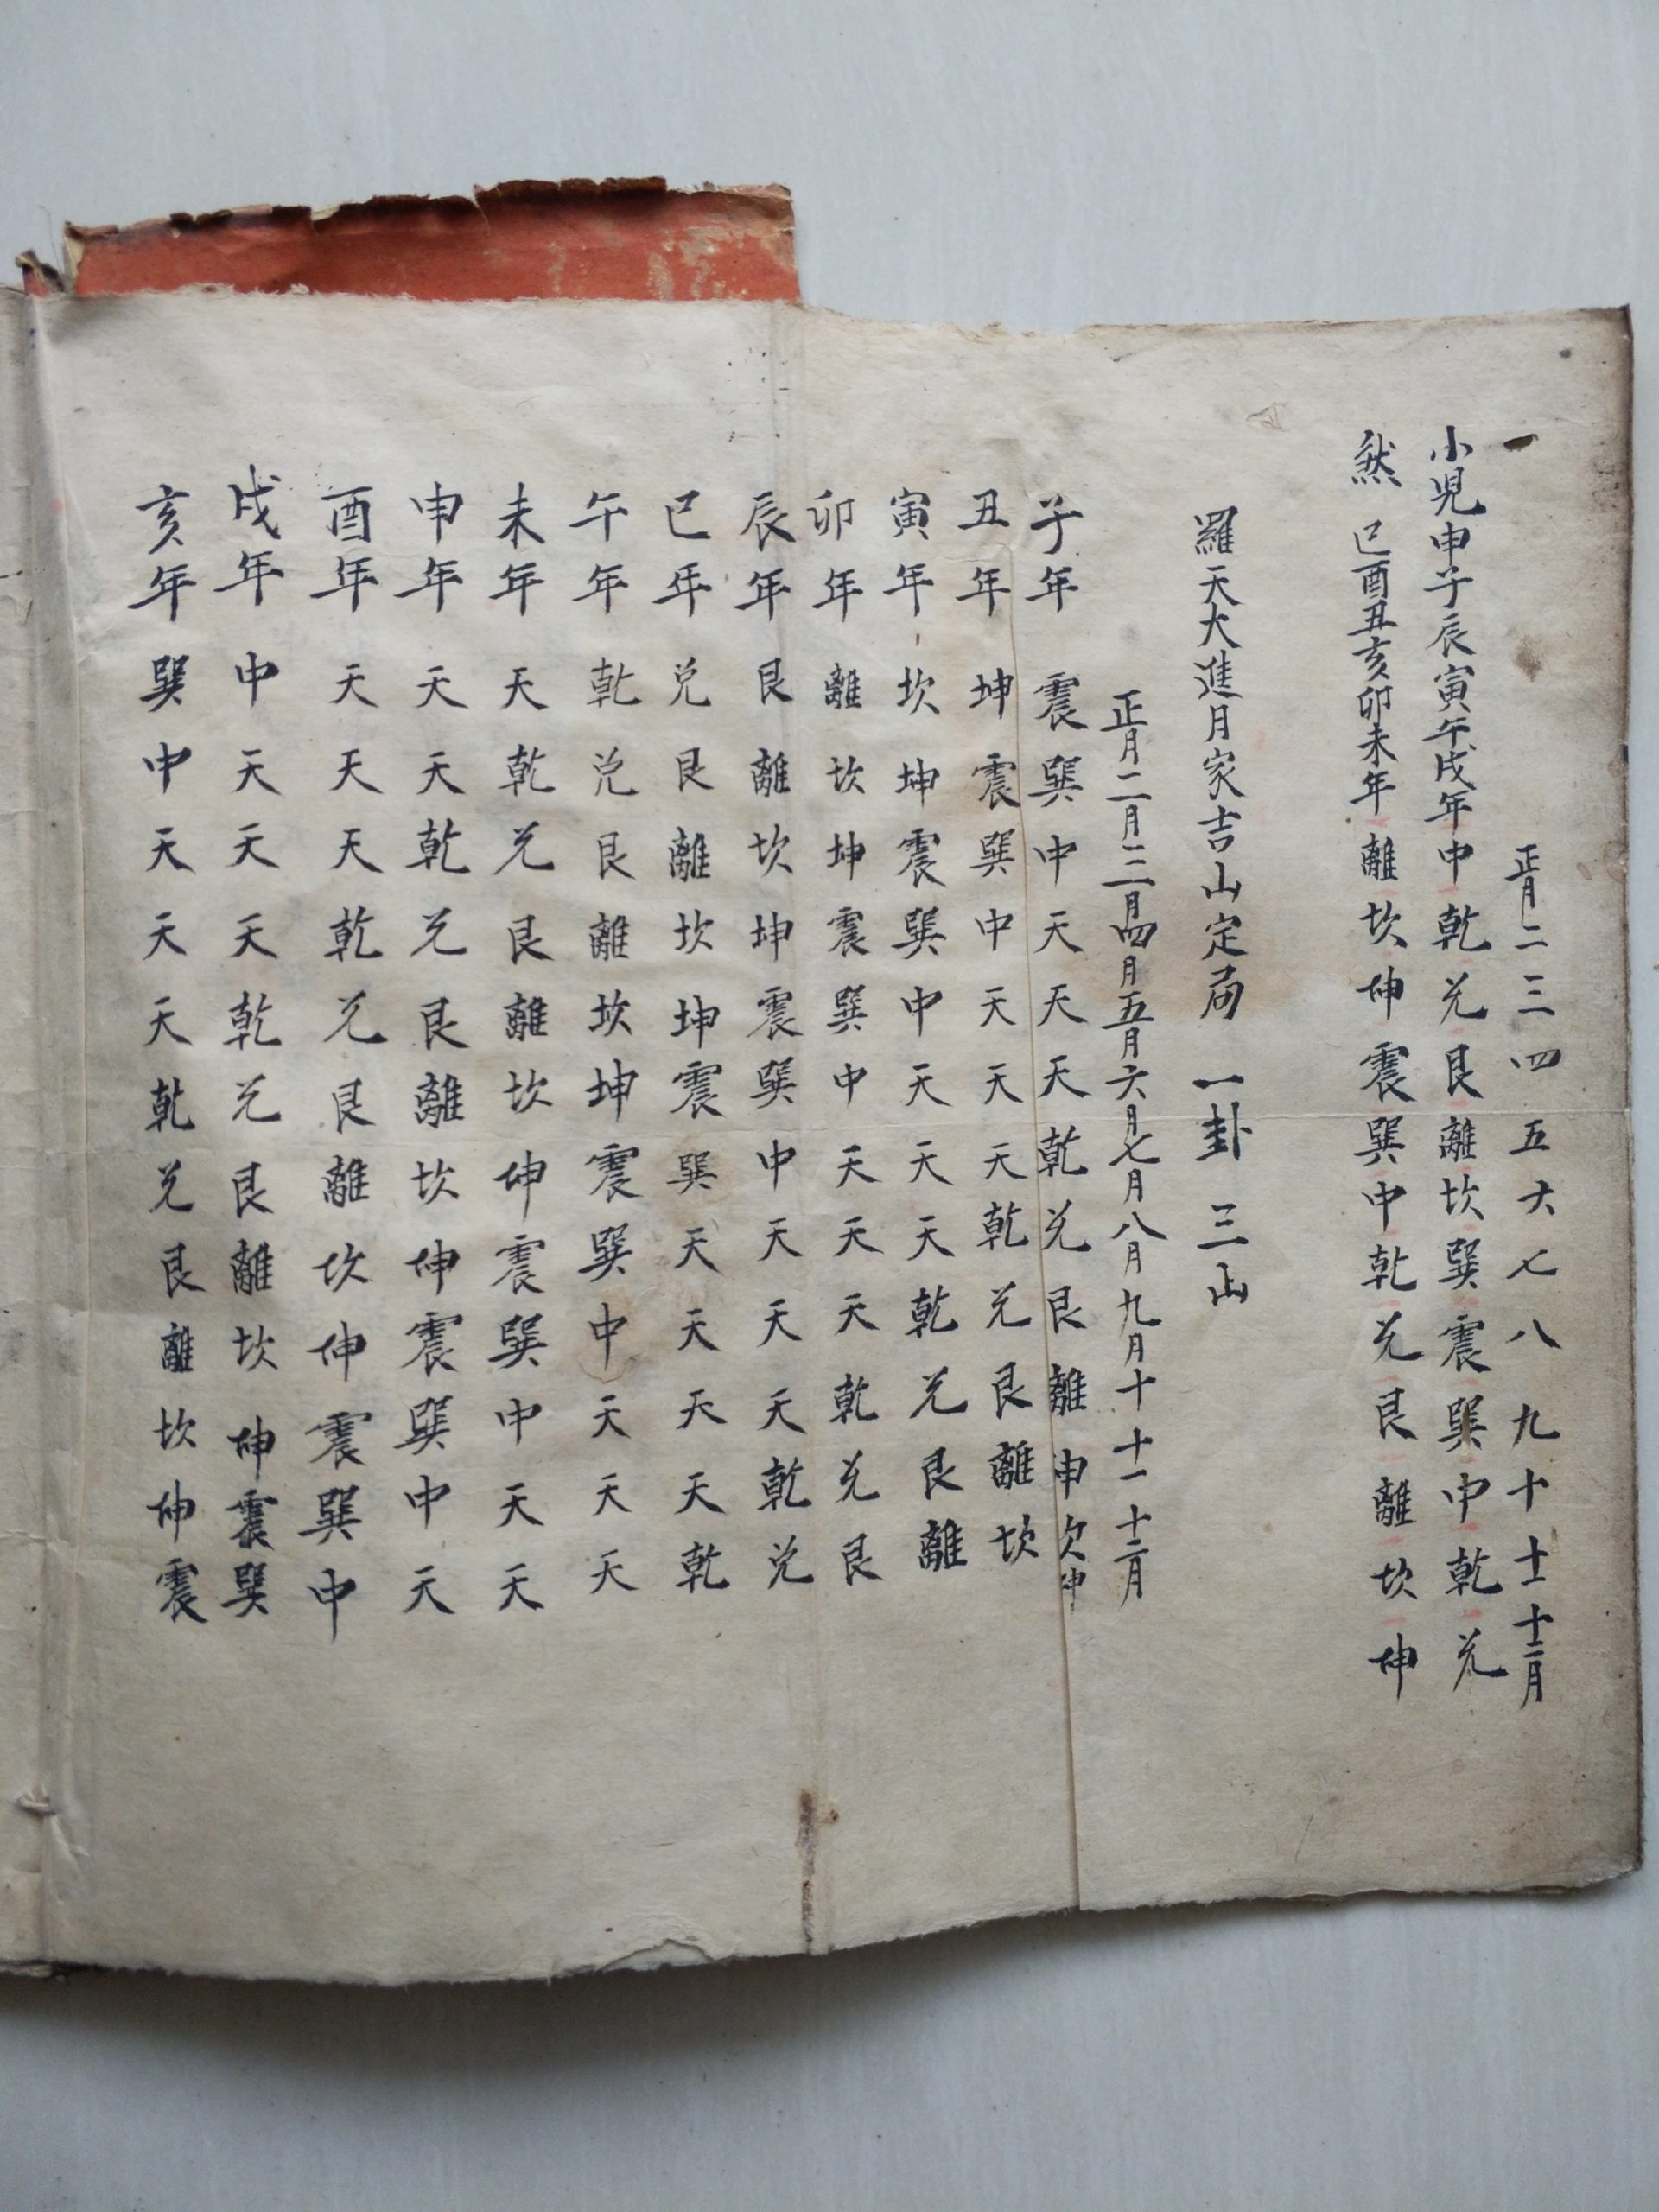 正月二三四五六七八九十十一十二月
小児申子辰寅午戌年中乾兑艮離坎巽震巽中乾兑
煞 巳酉丑亥卯未年離坎坤震巽中乾兑艮離坎坤
羅天大進月家吉山定局 一卦三山
正月二月三月四月五月六月七月八月九月十十一十二月
子年 震巽中天天天乾兑艮離申欠坤
丑年 坤震巽中天天天乾兑艮離坎
寅年 坎坤震巽中天天天乾兑艮離
卯年 離坎坤震巽中天天天乾兑艮
辰年 艮離坎坤震巽中天天天乾兑
巳年 兑艮離坎坤震巽天天天天乾
午年 乾兑艮離坎坤震巽中天天天
未年 天乾兑艮離坎坤震巽中天天
申年 天天乾兑艮離坎坤震巽中天
酉年 天天天乾兑艮離坎坤震巽中
戌年 中天天天乾兑艮離坎坤震巽
亥年 巽中天天天乾兑艮離坎坤震